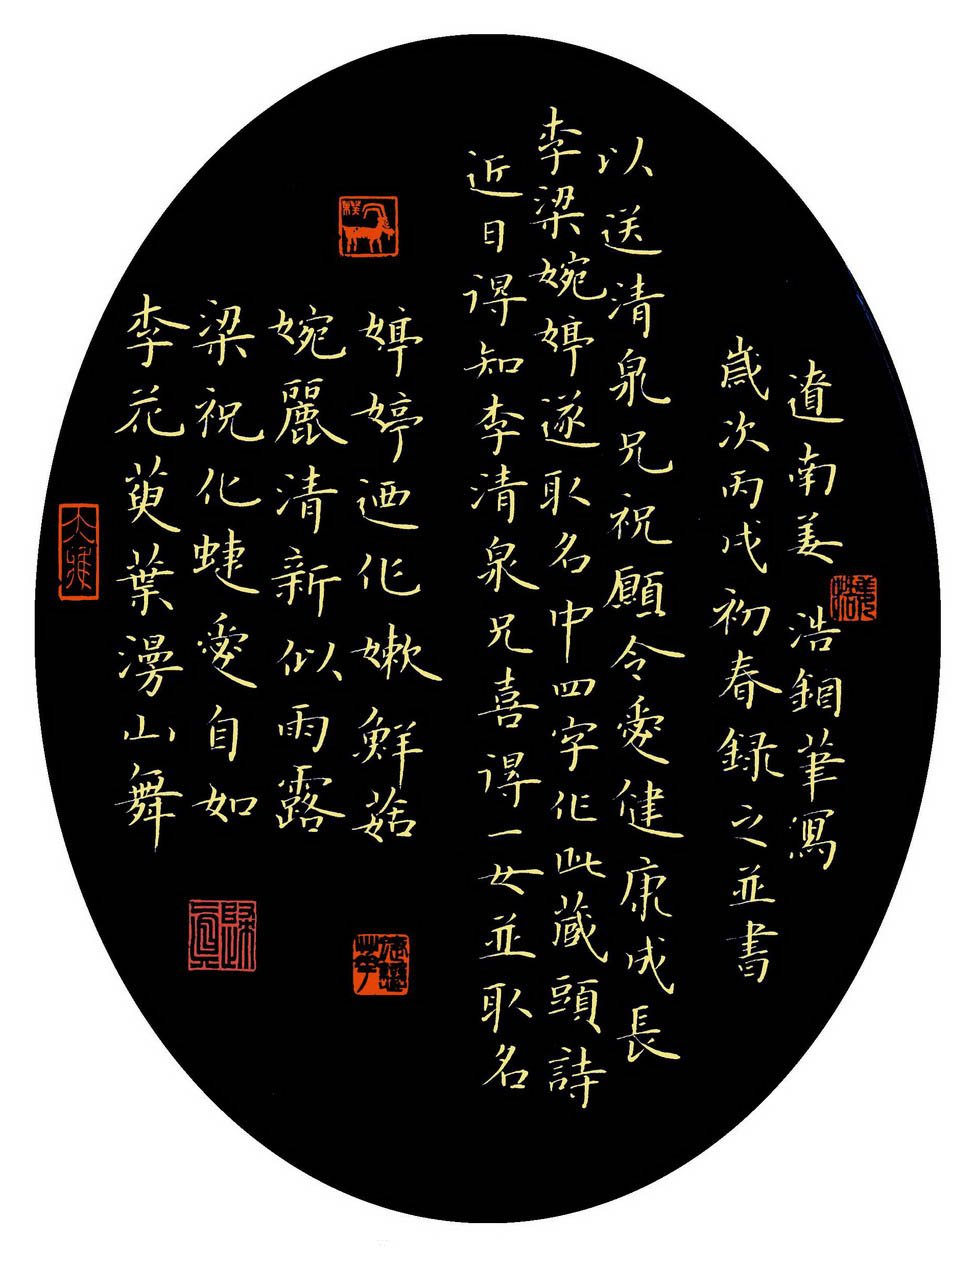 李花萸葉漫山舞
梁祝化蜨愛自如
婉麗清新似雨露
婷婷迺作嫩鮮菇
近日得知李清泉兄喜得一女並取名
李梁婉婷遂取名中四字作此藏頭詩
以送清泉兄祝願令愛健康成長
歲次丙戌初春録之並書
遼南姜浩筆寫
大雅
姜浩